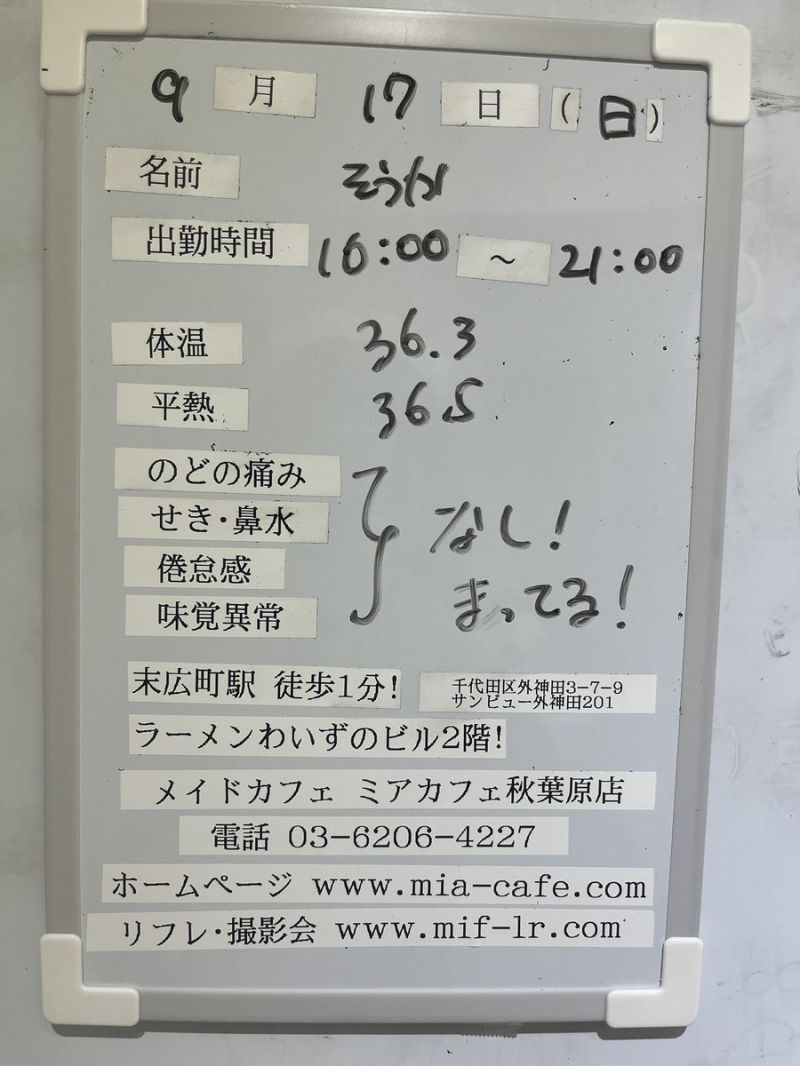 9月 17日(日)
名前 そうか
出勤時間 16:00 ~ 21:00
体温 36.3
平熱 36.5
のどの痛み
せき・鼻水
倦怠感
味覚異常
なし!
まってる!
末広町駅 徒歩1分!
千代田区外神田3-7-9
サンビュー外神田201
ラーメンわいずのビル2階!
メイドカフェ ミアカフェ秋葉原店
電話 03-6206-4227
ホームページ www.mia-cafe.com
リフレ・撮影会 www.mif-lr.com